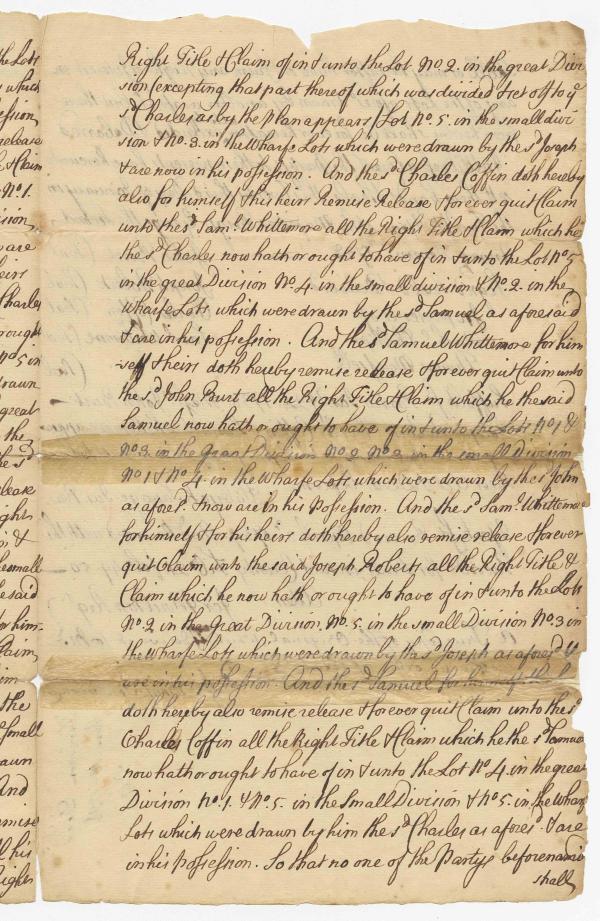 Right Title & Claim of in & unto the Lot No. 2. in the great Divi
sion (excepting that part thereof which was divided & set off to ye
sd. Charles as by the plan appears) Lot No. 5. in the small divi
sion & No. 3. in the Wharfe Lots which were drawn by the sd. Joseph
& are now in his possession. And the sd. Charles Coffin doth hereby
also for himself & his heirs Remise Release & forever quit Claim
unto the sd. Saml. Whittemore all the Right Title & Claim which he
the sd. Charles now hath or ought to have of in & unto the Lot No. 5
in the great Division No. 4. in the small division & No. 2. in the
Wharfe Lots which were drawn by the sd. Samuel as aforesaid
& are in his possession. And the sd. Samuel Whittemore for him
-self & heirs doth hereby remise release & forever quit Claim unto
the sd. John Hurst all the Right Title & Claim which he the said
Samuel now hath or ought to have of in & unto the Lots No. 1 &
No. 3. in the Great Division No. 2 No. 3. in the small division
No. 1 & No. 4. in the Wharfe Lots which were drawn by the sd. John
as aforesd. & now are in his Possession. And the sd. Saml. Whittemore
for himself & for his heirs doth hereby also remise release & forever
quit Claim unto the said Joseph Roberts all the Right Title &
Claim which he now hath or ought to have of in & unto the Lots
No. 2 in the Great Division, No. 5. in the small Division No. 3 in
the Wharfe Lots which were drawn by the sd. Joseph as aforesd. &
are in his possession. And the sd. Samuel for himself
doth hereby also remise release & forever quit Claim unto the sd.
Charles Coffin all the Right Title & Claim which he the sd. Samuel
now hath or ought to have of in & unto the Lot No. 4. in the great
Division No. 1. & No. 5. in the Small Division & No. 5. in the Wharfe
Lots which were drawn by him the sd. Charles as aforesd. & are
in his possession. So that no one of the Partys beforenamd
shall